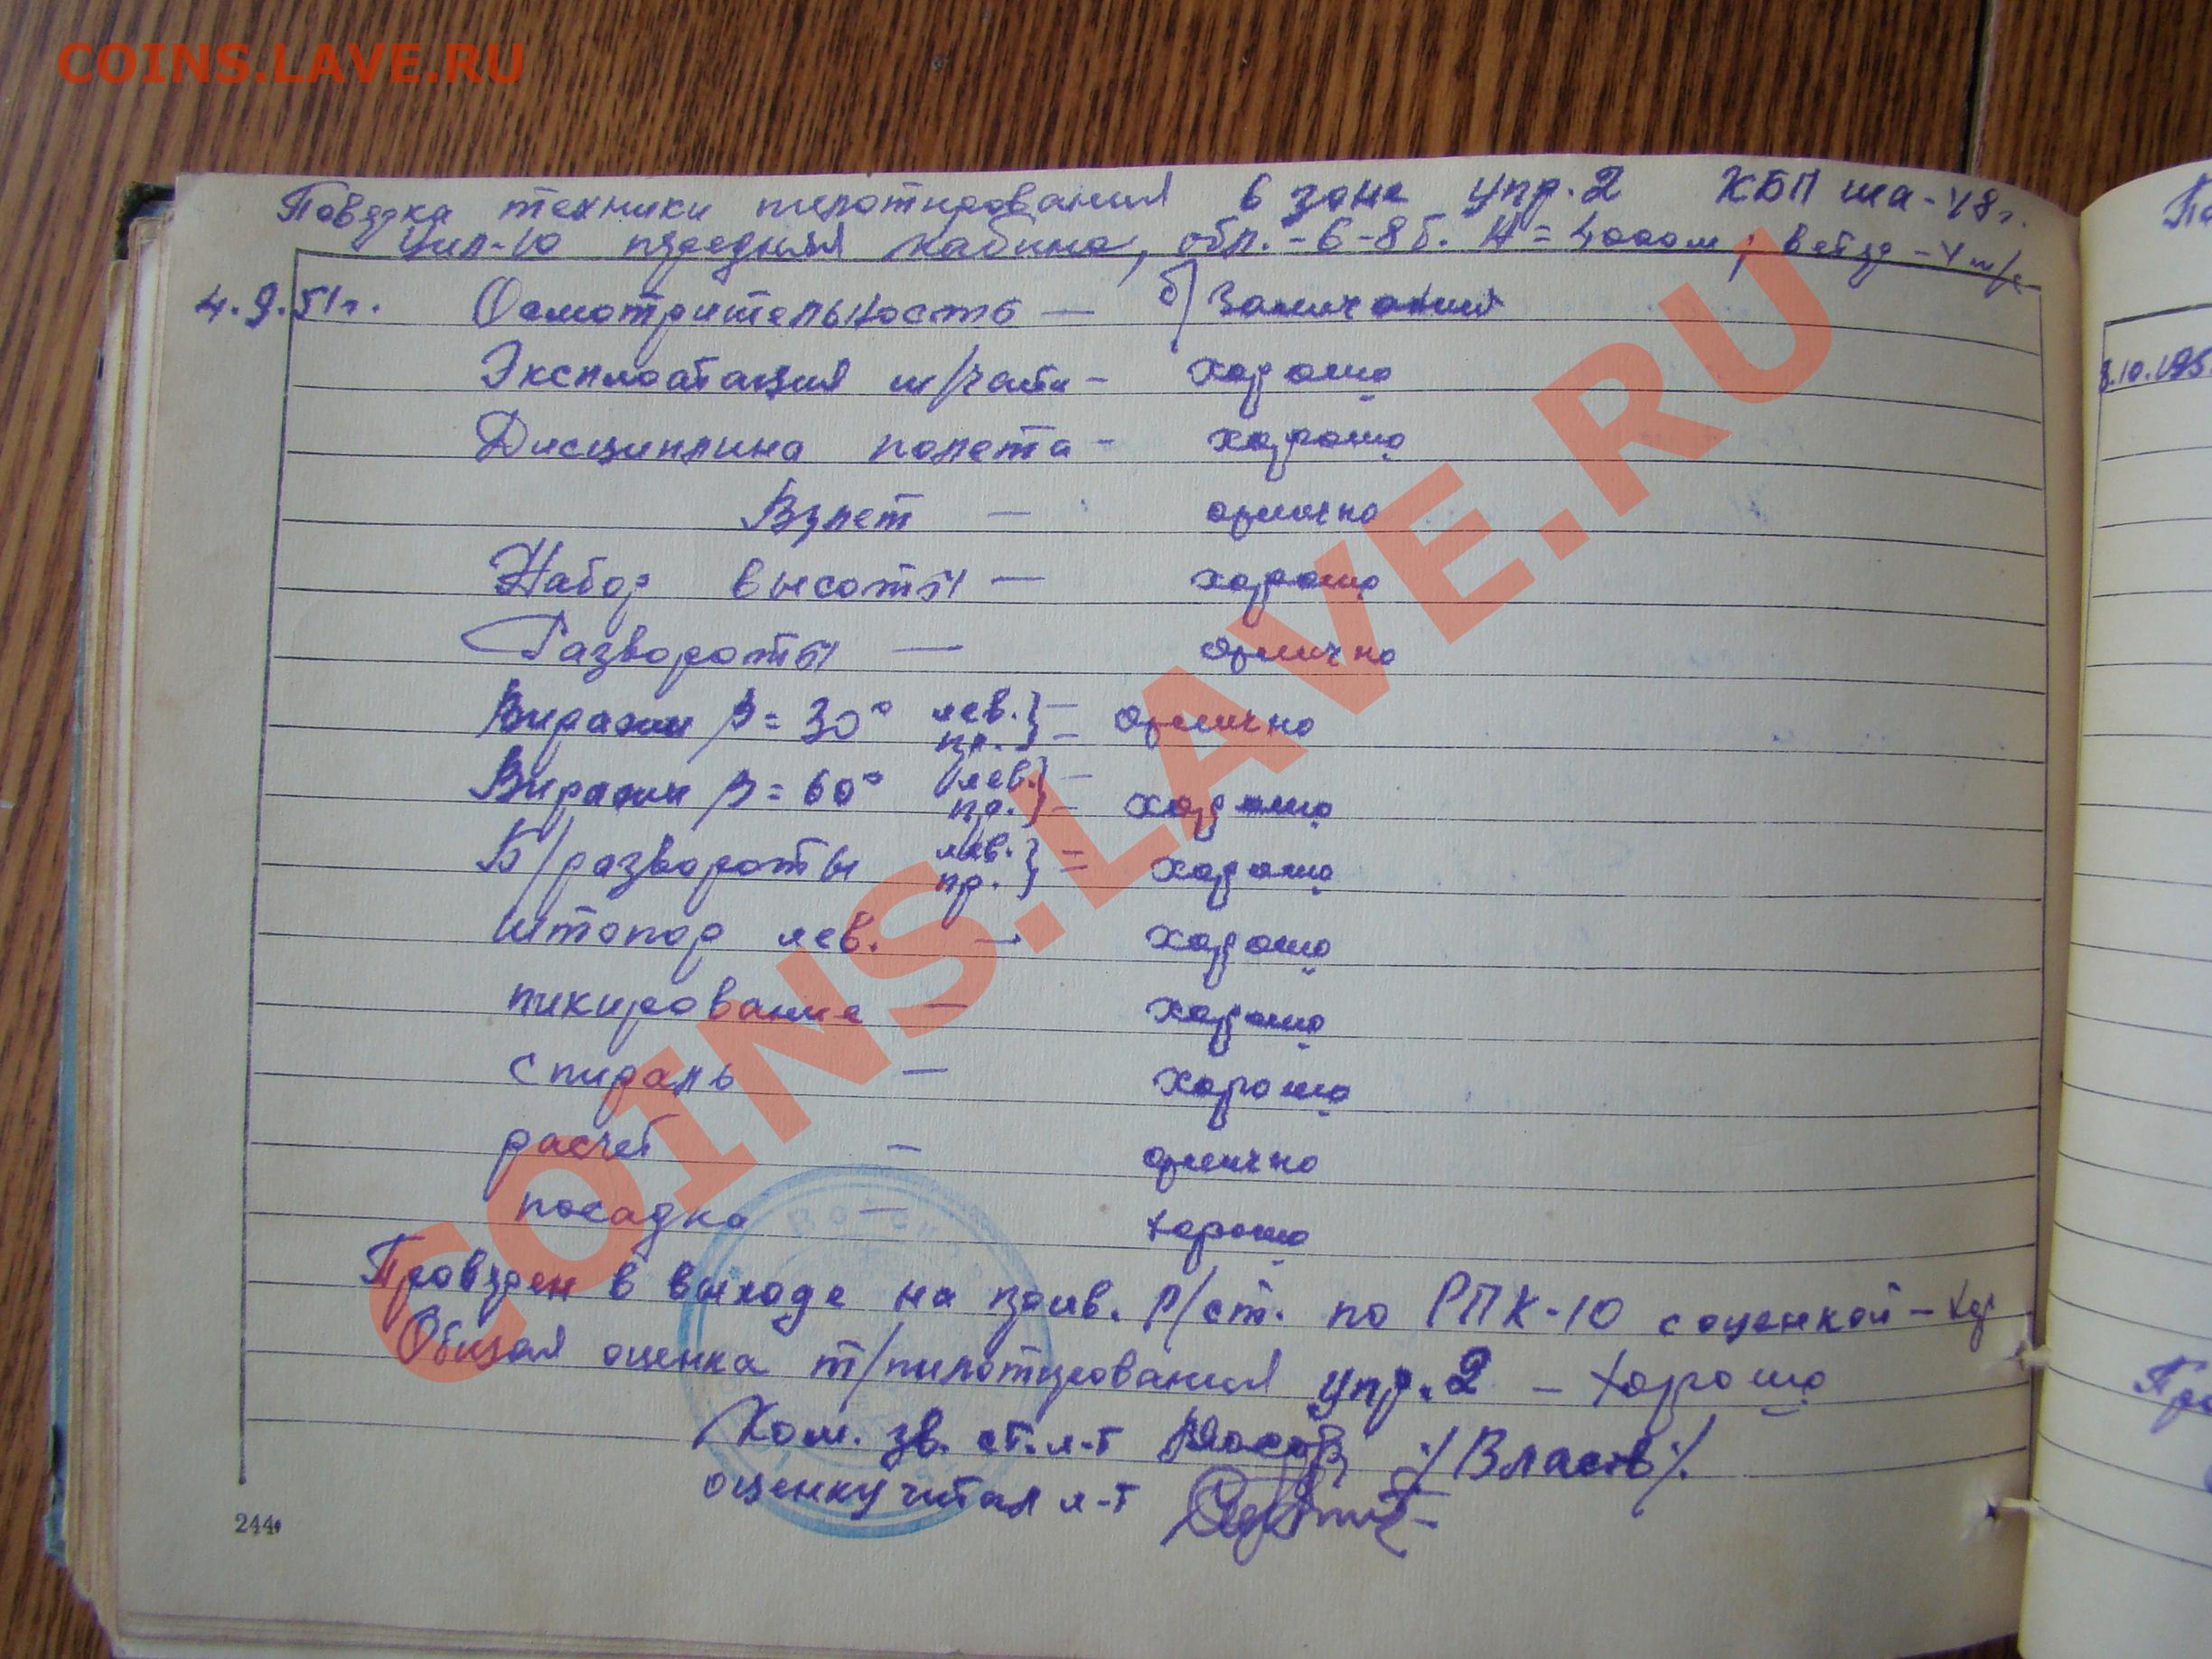 COINS.LAVE.RU
Поверка техники пилотирования в зоне упр. 2 КБП ша-48г.
Уил-10 передняя кабина, обл. - 6-8 б. H = 4000м; ветер - 4 м/с
4.9.51г. Осмотрительность — б/замечаний
Эксплоатация м/части - хорошо
Дисциплина полета - хорошо
Взлет — отлично
Набор высоты — хорошо
Развороты — отлично
Виражи β = 30° лев. } —
пр. } — отлично
Виражи β = 60° лев. } —
пр. } — хорошо
Б/развороты лев. } —
пр. } — хорошо
Штопор лев. — хорошо
пикирование — хорошо
спираль — хорошо
расчет — отлично
посадка — хорошо
Проверен в выходе на прив. р/ст. по РПК-10 с оценкой - хор
Общая оценка т/пилотирования упр. 2 — хорошо
Ком. зв. ст. л-т /Власов/.
оценку читал л-т
244
Войско
8.10.195
COINS.LAVE.RU